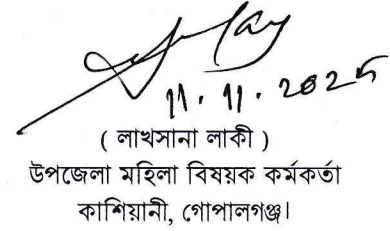 11.11.2025
( লাখসানা লাকী )
উপজেলা মহিলা বিষয়ক কর্মকর্তা
কাশিয়ানী, গোপালগঞ্জ।